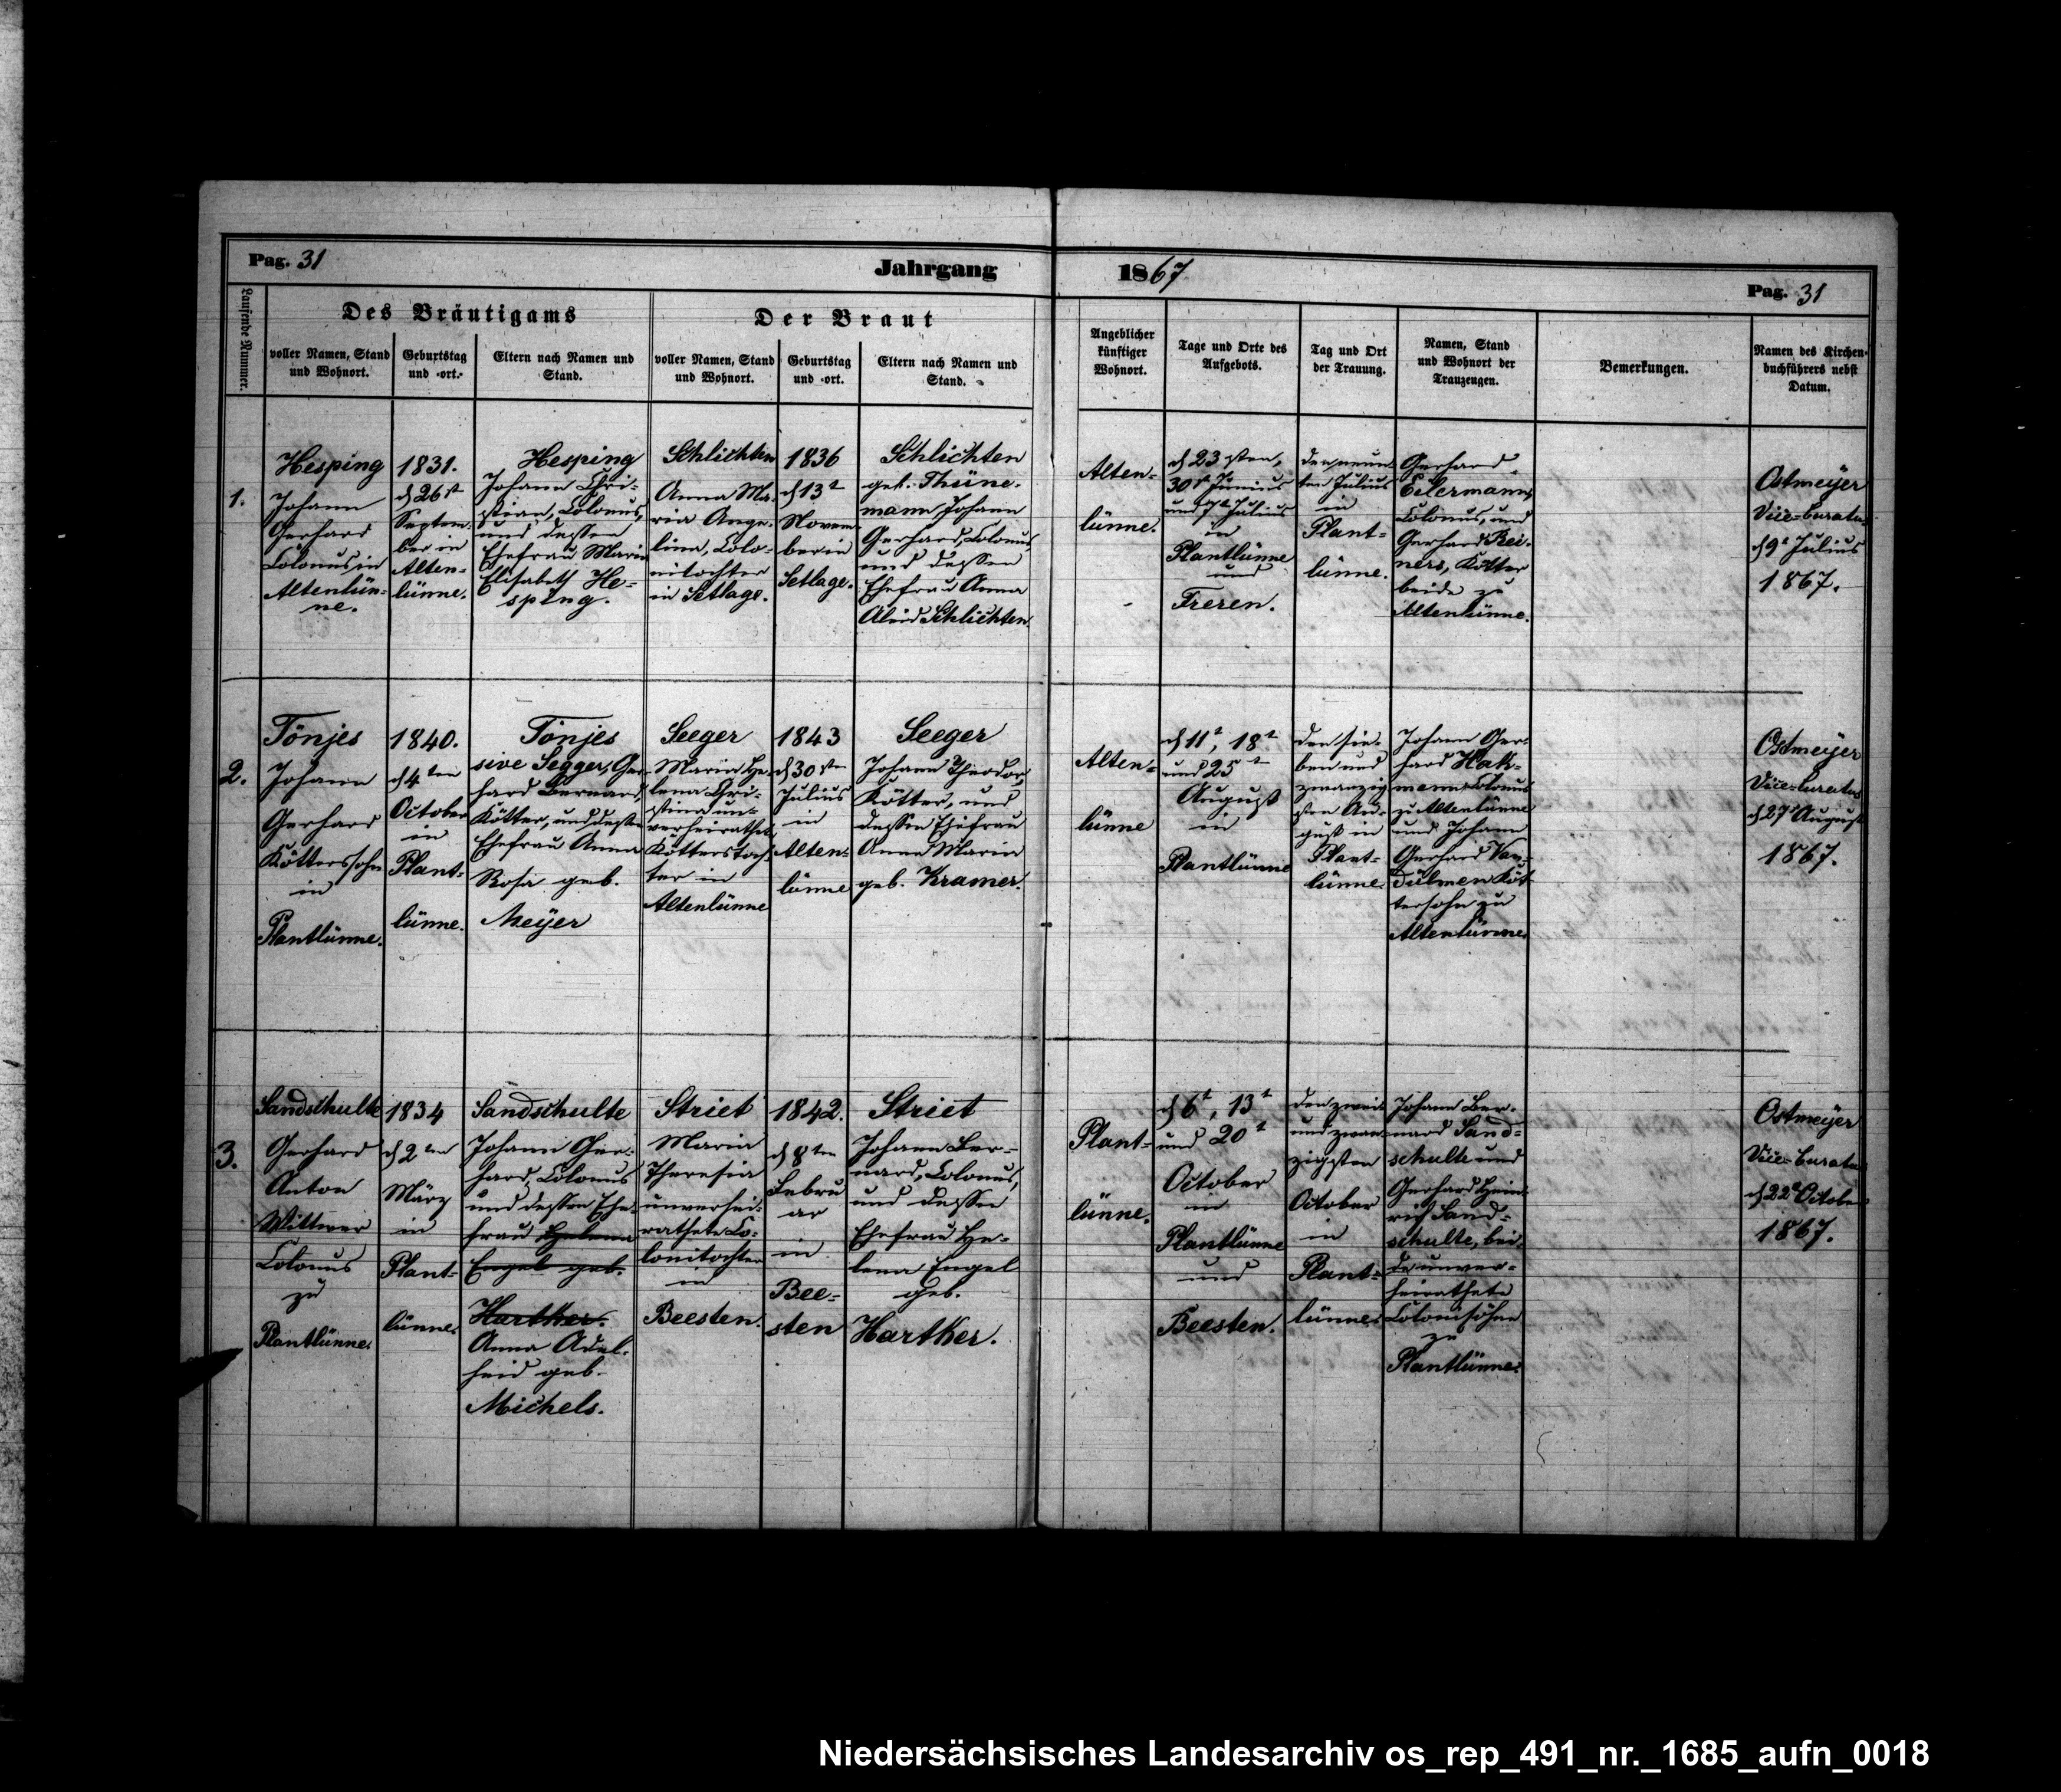 Pag. 31
Jahrgang
1867
Pag. 31
Laufende Nummer.
Des Bräutigams
voller Namen, Stand
und Wohnort.
Geburtstag
und -ort.
Eltern nach Namen und
Stand.
Der Braut
voller Namen, Stand
und Wohnort.
Geburtstag
und -ort.
Eltern nach Namen und
Stand.
Angeblicher
künftiger
Wohnort.
Tage und Orte des
Aufgebots.
Tag und Ort
der Trauung.
Namen, Stand
und Wohnort der
Trauzeugen.
Bemerkungen.
Namen des Kirchen-
buchführers nebst
Datum.
1.
Hesping
Johann
Gerhard
Colonus in
Altenlün-
ne.
1831.
d 26t
Septem-
ber in
Alten-
lünne.
Hesping
Johann Chri-
stian, Colonus,
und dessen
Ehefrau Maria
Elisabeth He-
sping.
Schlichten
Anna Ma-
ria Ange-
lina, Colo-
nitochter
in Setlage.
1836
d 13t
Novem-
ber in
Setlage.
Schlichten
geb. Thüne-
mann Johann
Gerhard, Colonus,
und dessen
Ehefrau Anna
Aleid Schlichten
Alten-
lünne.
d 23sten,
30t Junius
und 7t Julius
in
Plantlünne
und
Freren.
den neun-
ten Julius
in
Plant-
lünne.
Gerhard
Eilermann,
Colonus, und
Gerhard Rei-
ners, Kötter
beide zu
Altenlünne.
Ostmeyer
Vice-Curatus
d 9t Julius
1867.
2.
Tönjes
Johann
Gerhard
Kötterssohn
in
Plantlünne.
1840.
d 4ten
October
in
Plant-
lünne.
Tönjes
sive Segger, Ger-
hard Bernard,
Kötter, und dessen
Ehefrau Anna
Rosa geb.
Meyer
Seeger
Maria He-
lena Chri-
stina un-
verheirathete
Kötterstoch-
ter in
Altenlünne
1843
d 30sten
Julius
in
Alten-
lünne
Seeger
Johann Theodor,
Kötter, und
dessen Ehefrau
Anna Maria
geb. Kramer.
Alten-
lünne
d 11t, 18t
und 25t
August
in
Plantlünne
den sie-
ben und
zwanzig
sten Au-
gust in
Plant-
lünne.
Johann Ger-
hard Hak-
mann Colonus
zu Altenlünne
und Johann
Gerhard Van-
dülmen Köt-
tersohn zu
Altenlünne.
Ostmeyer
Vice-Curatus
d 27t August
1867.
3.
Sandschulte
Gerhard
Anton
Wittwer
Colonus
zu
Plantlünne.
1834
d 2ten
März
in
Plant-
lünne.
Sandschulte
Johann Ger-
hard, Colonus
und dessen Ehe-
frau Helena
Engel geb.
Hartker.
Anna Adel-
heid geb.
Michels.
Striet
Maria
Theresia
unverhei-
rathete Co-
lonitochter
in
Beesten.
1842.
d 8ten
Febru
ar
in
Bee-
sten
Striet
Johann Ber-
nard, Colonus,
und dessen
Ehefrau He-
lena Engel
geb.
Hartker.
Plant-
lünne.
d 6t, 13t
und 20t
October
in
Plantlünne
und
Beesten.
den zwei
und zwan-
zigsten
October
in
Plant-
lünne.
Johann Ber-
nard Sand-
schulte und
Gerhard Hein-
rich Sand-
schulte, bei-
de unver-
heirathete
Colonisöhne
zu
Plantlünne.
Ostmeyer
Vice-Curatus
d 22t October
1867.
Niedersächsisches Landesarchiv os_rep_491_nr._1685_aufn_0018